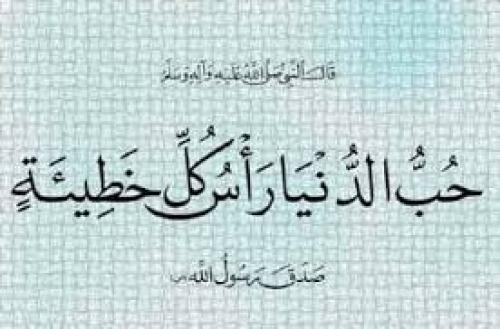 قَالَ النَّبِيُّ صَلَّى اللهُ عَلَيْهِ وَآلِهِ وَسَلَّمَ
حُبُّ الدُّنْيَا رَأْسُ كُلِّ خَطِيئَةٍ
صَدَقَ رَسُولُ اللهِ